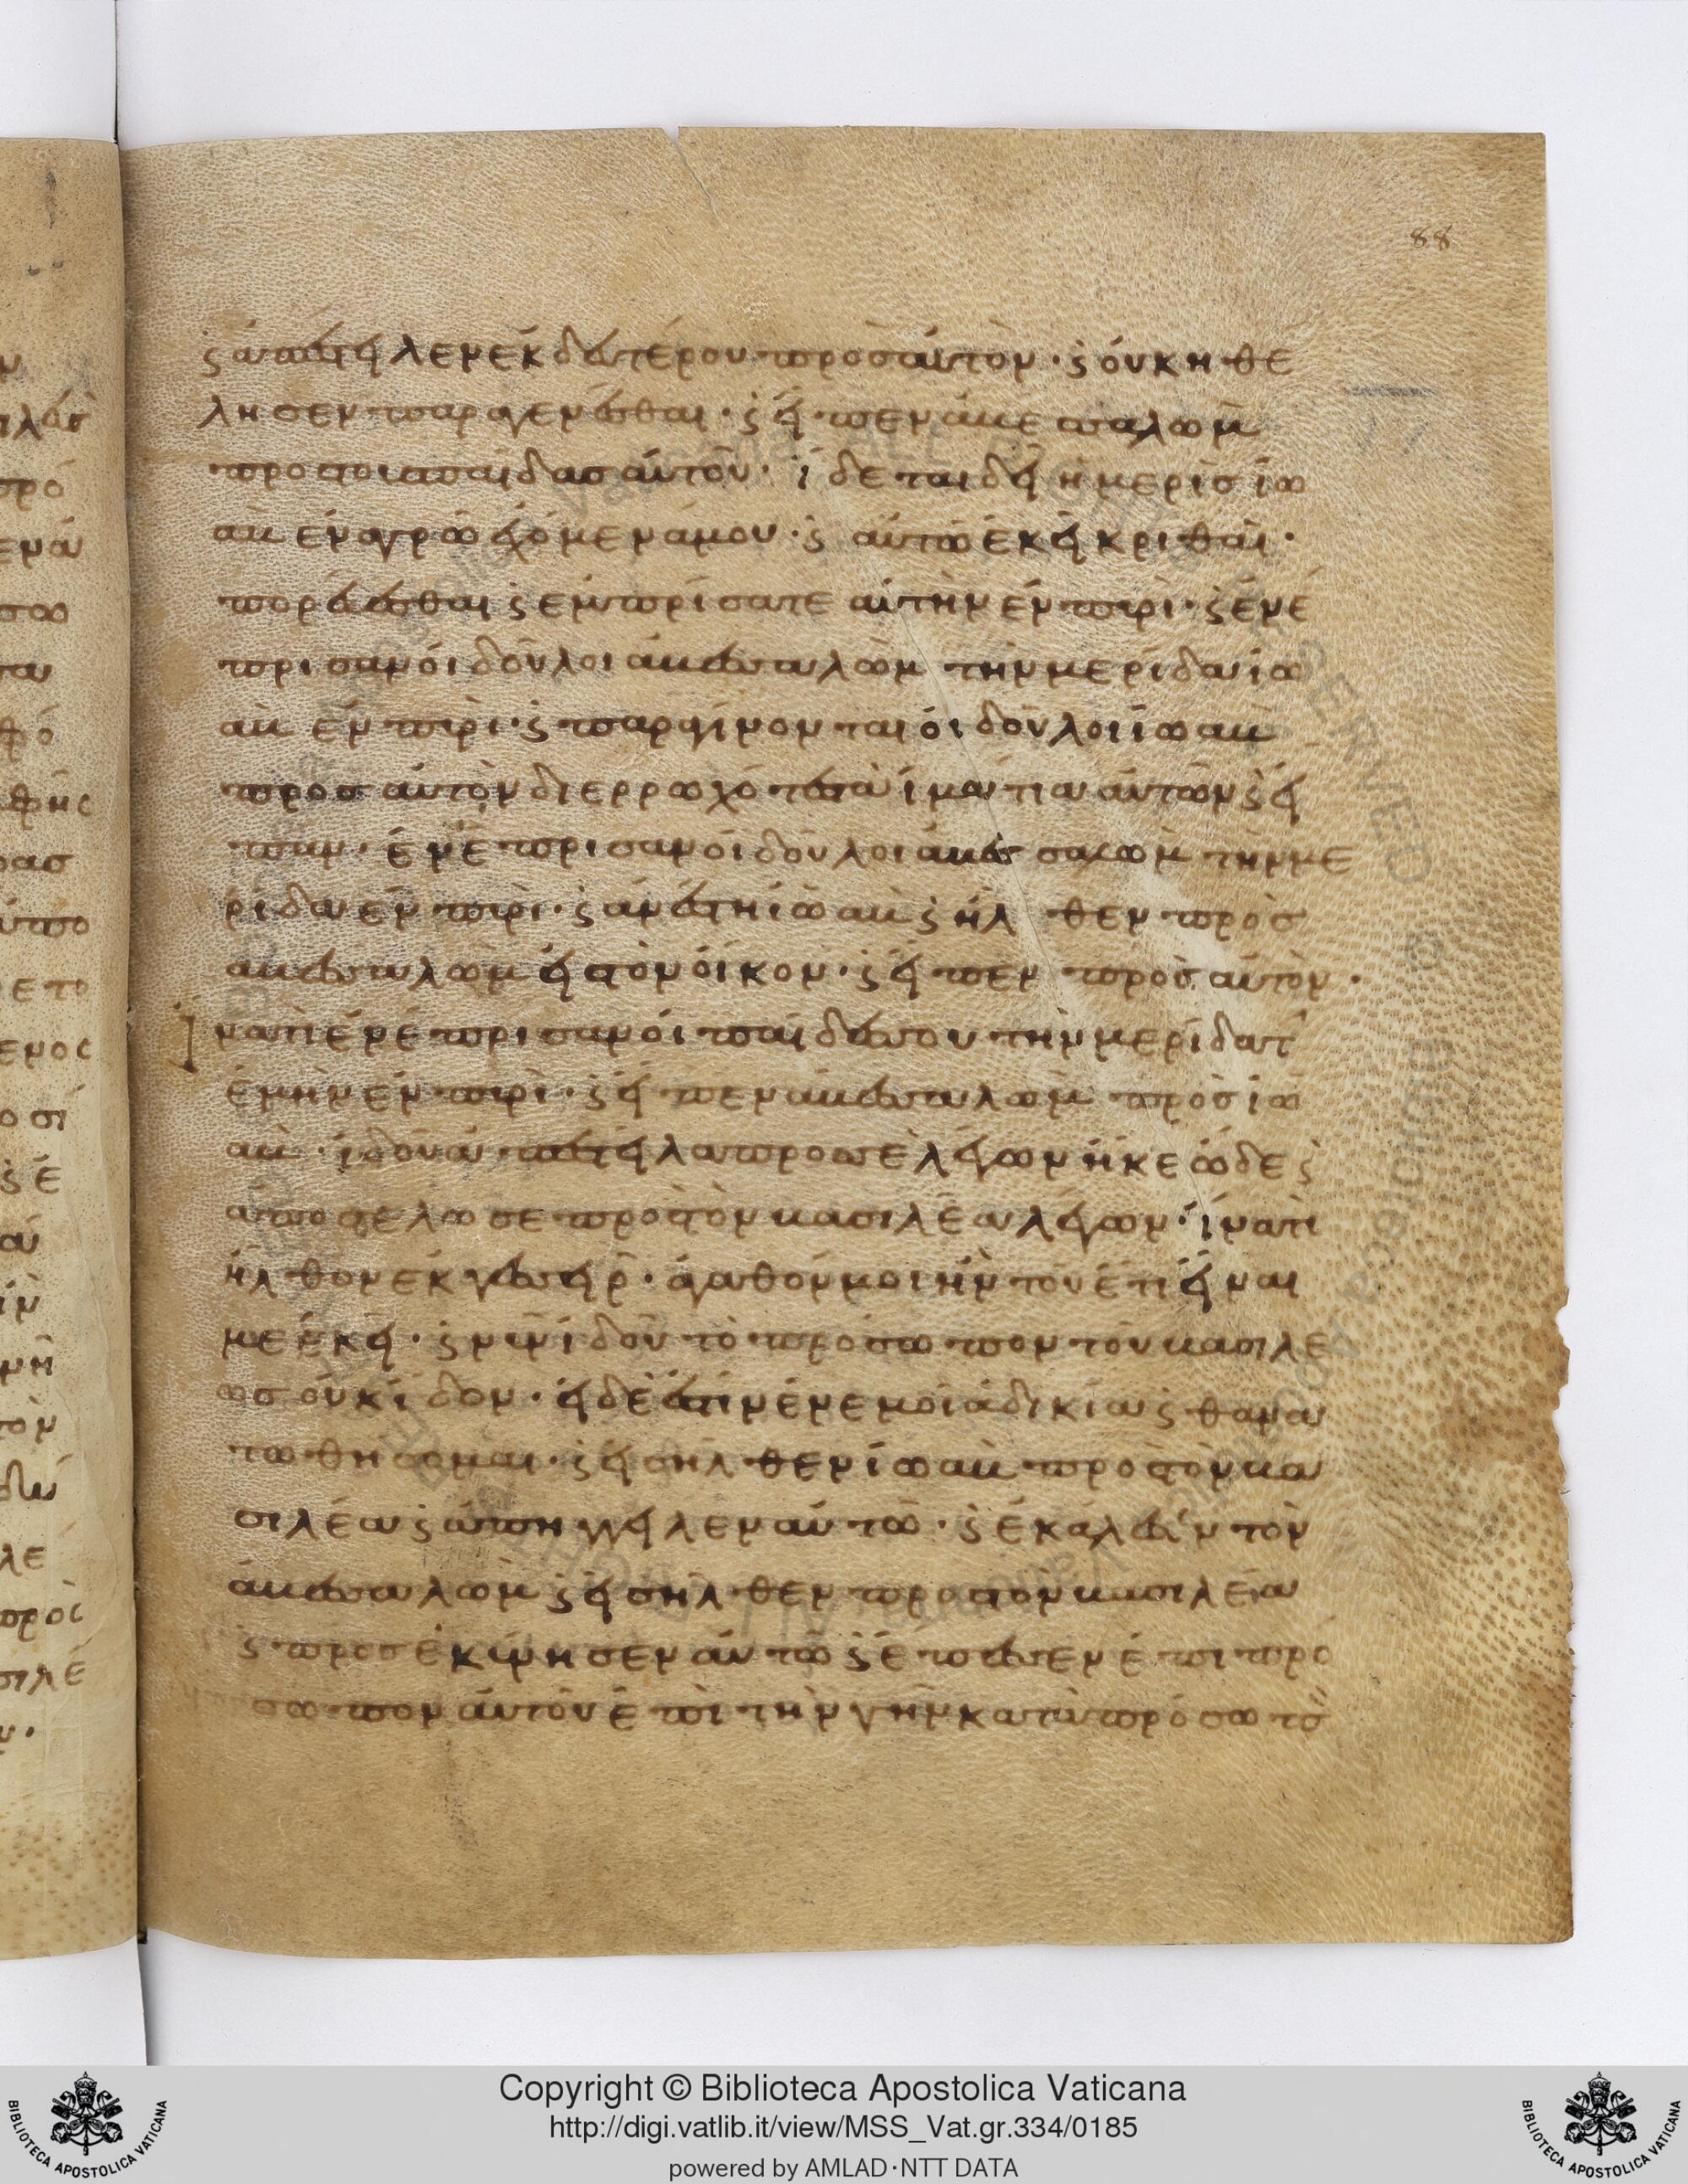 88
ϛ ἀπέστειλεν ἐκ δευτέρου πρὸς αὐτὸν · ϛ οὐκ ἠθέ
λησεν παραγενέσθαι · ϛ εἶπεν ἀβεσαλὼμ
προς τουσ παῖδασ αὐτοῦ · ἴδεται δὴ ἡ μερὶσ ἰω
ὰβ ἐν ἀγρῶ ἐχόμενά μου · ϛ αὐτῶ ἐκεῖ κριθαὶ ·
πορεύεσθαι ϛ ἐμπρίσατε αὐτὴν ἐν πυρὶ · ϛ ἐνέ
πρισαν οἱ δοῦλοι ἀβεσσαλὼμ τὴν μερίδα ἰω
ὰβ ἐν πυρὶ · ϛ παραγίνονται οἱ δοῦλοι ἰωὰβ
προσ αὐτὸν διερρωχότεσ τὰ ἱμάτια αὐτῶν ϛ εἶ
παν · ἐνέπρισαν οἱ δοῦλοι ἀβεσσαλὼμ τὴν με
ρίδα ἐν πυρὶ · ϛ ἀνέστη ἰωὰβ ϛ ἦλθεν πρὸσ
αβεσσαλὼμ εἰς τὸν οἶκον · ϛ εἶπεν πρὸσ αὐτὸν ·
Ἱνατί ἐνέπρισαν οἱ παῖδέσ σου τὴν μερίδα τ
ἐμὴν ἐν πυρὶ · ϛ εἶπεν ἀβεσσαλὼμ πρὸσ ἰω
ὰβ · ἰδοὺ ἀπέστειλα προς σὲ λέγων ἧκε ὧδε ϛ
ἀποστελῶ σε προς τὸν βασιλέα λέγων · ἱνατί
ἦλθον ἐκ γεσσεὶρ · ἀγαθόν μοι ἦν τοῦ ἔτι εἶναι
με ἐκεῖ · ϛ νῦν ἰδοὺ τὸ πρόσωπον τοῦ βασιλέ
ωσ οὐκ ἴδον · εἰ δέ ἐστιν ἐν ἐμοὶ ἀδικία ϛ θανα
τωθήσομαι · ϛ εἰσῆλθεν ἰωὰβ προς τὸν βα
σιλέα ϛ ἀπήγγειλεν αὐτῶ · ϛ ἐκάλεσεν τὸν
ἀβεσσαλὼμ ϛ εἰσῆλθεν προς τὸν βασιλέα
ϛ προσεκύνησεν αὐτῶ ϛ ἔπεσεν ἐπι προ
σωπον αὐτοῦ ἐπὶ τὴν γῆν κατὰ πρόσωπ
Copyright © Biblioteca Apostolica Vaticana
http://digi.vatlib.it/view/MSS_Vat.gr.334/0185
powered by AMLAD·NTT DATA
BIBLIOTECA APOSTOLICA VATICANA
BIBLIOTECA APOSTOLICA VATICANA